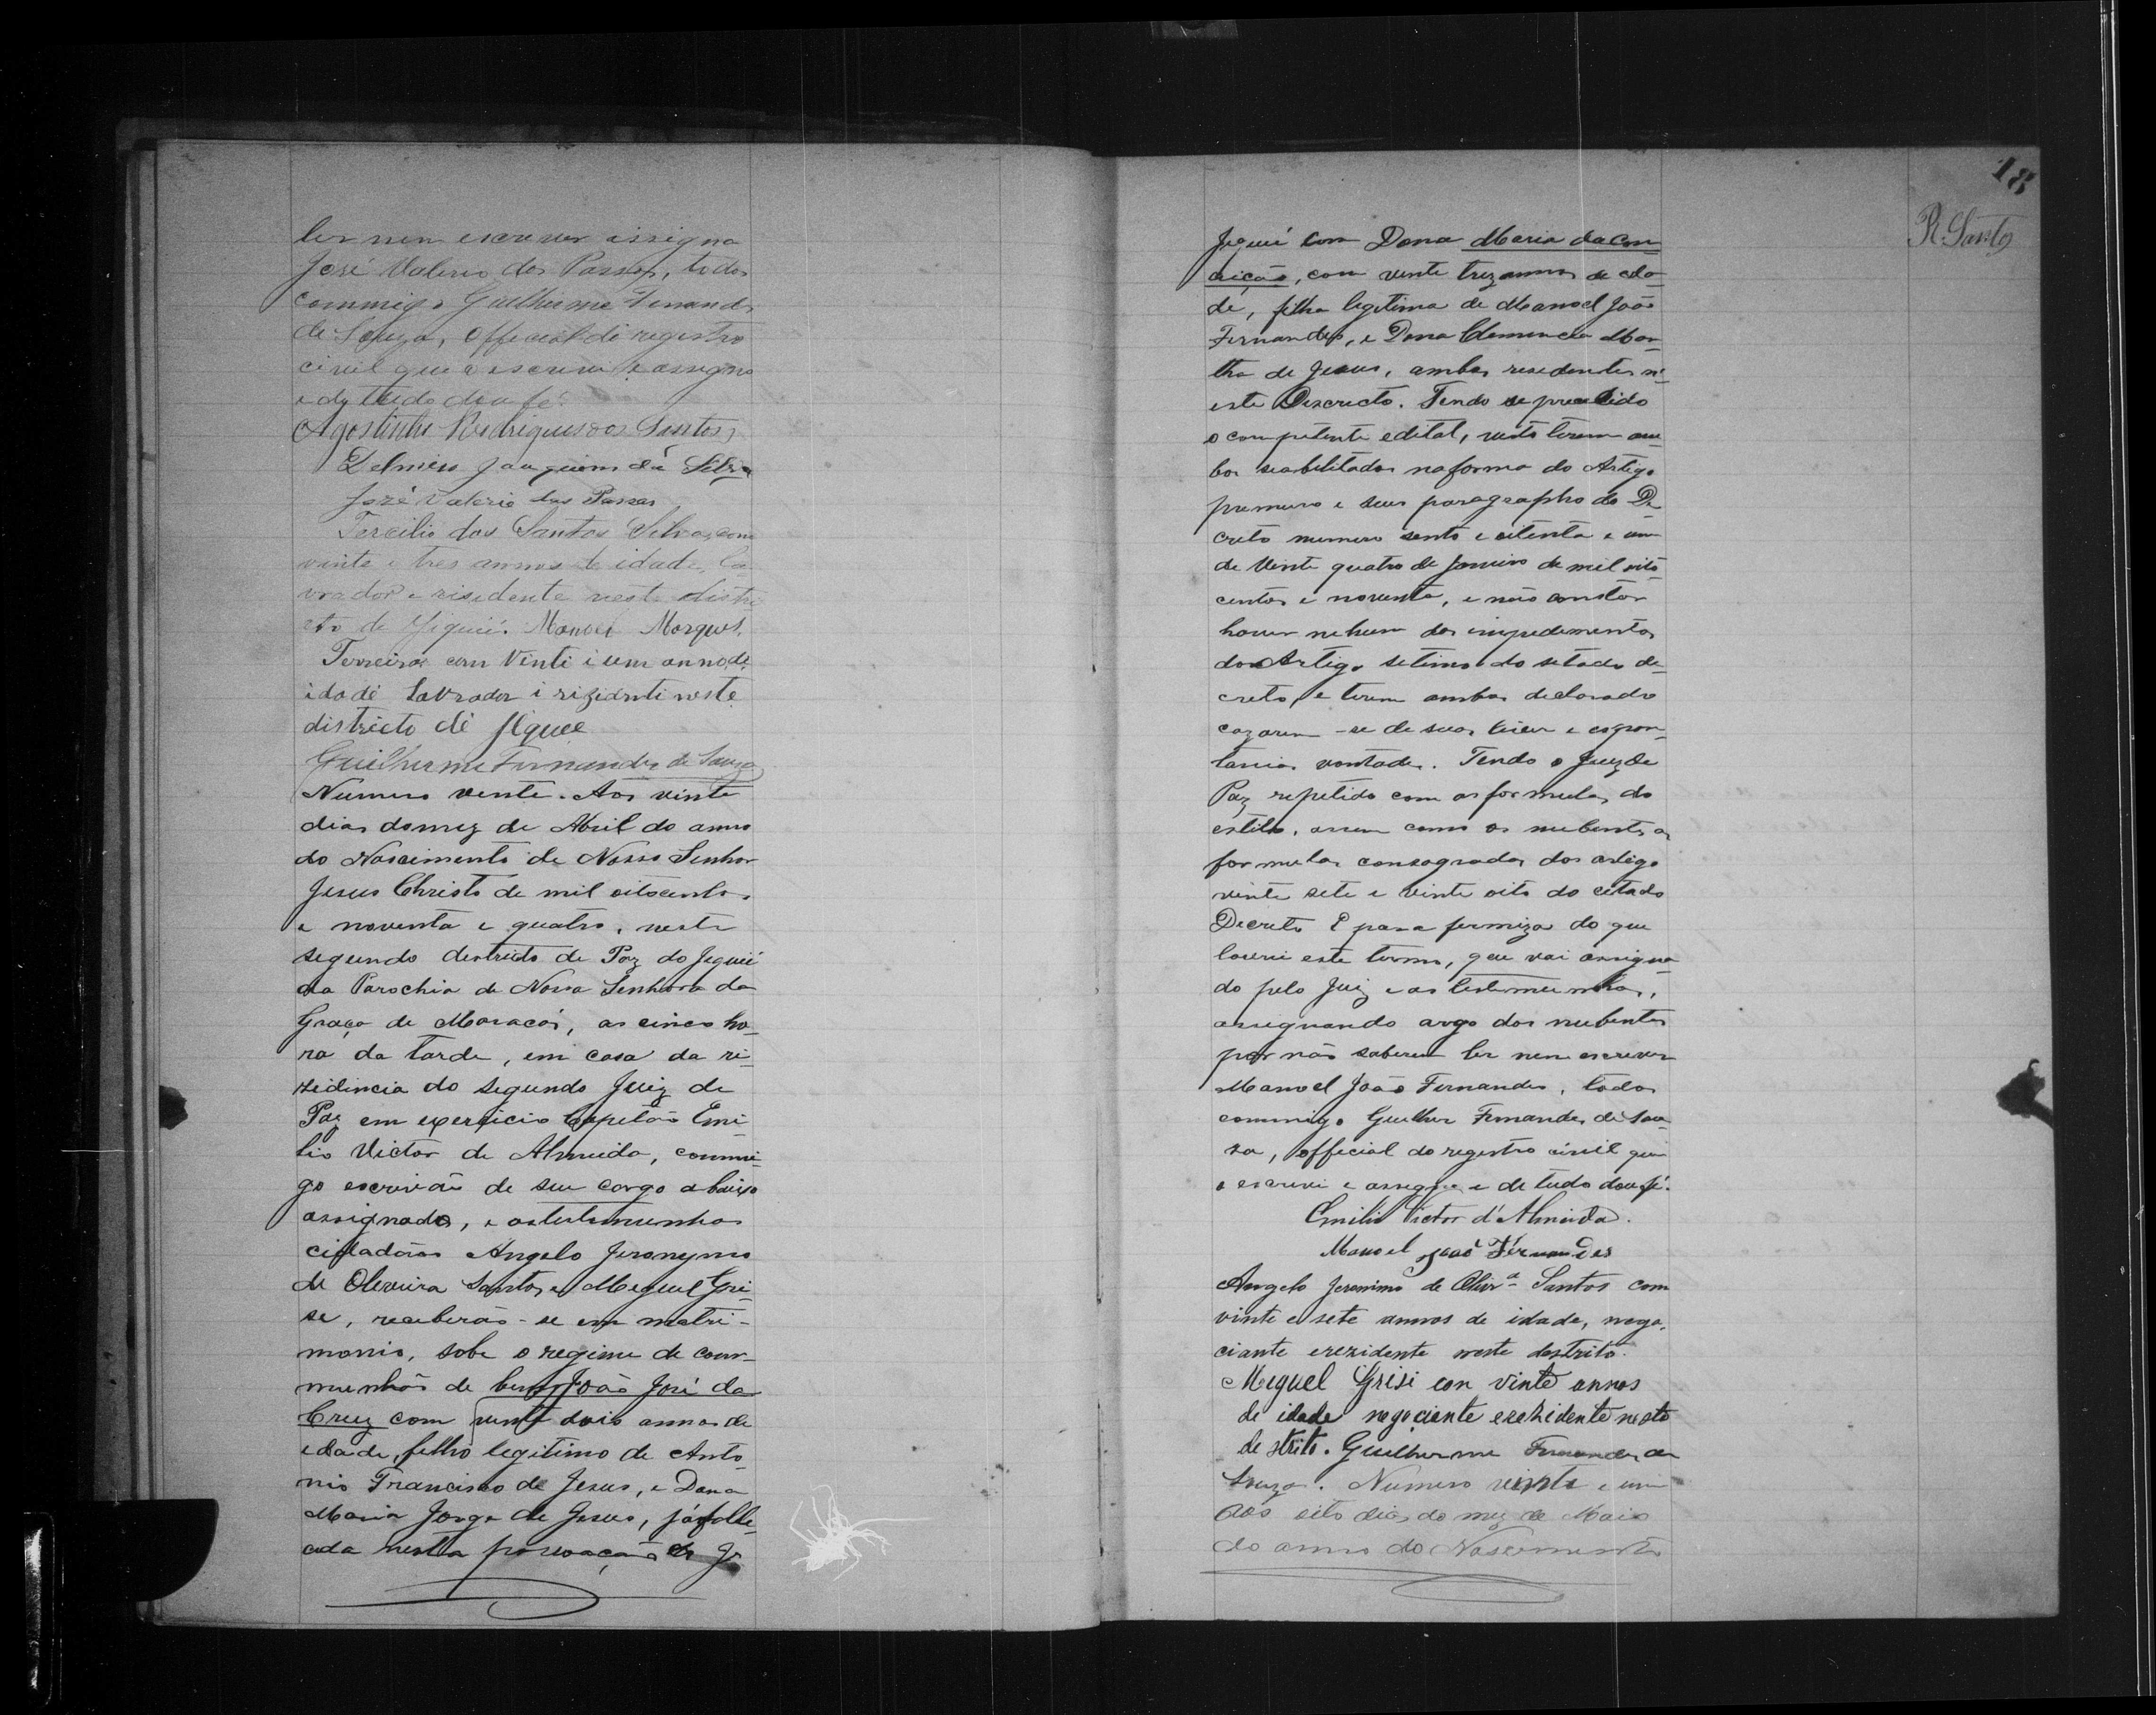 ler nem escrever assigna
José Valerio dos Passos, todos
commigo Guilherme Fernands
de Souza, Official do registro
civil que o escrevi e assigno
e dy tudo dou fé.
Agostinho Rodrigues dos Santos
Delmiro Joaquim da Silva
José Valerio dos Passos
Tercilio dos Santos Silva, com
vinte e tres annos de idade, la-
vrador e risidente neste distri
cto de Jiquié. Manoel Marques
Ferreira com Vinti i um anno, di
idadé Lavrador i rizidenti neste
districto dé Jlquee
Guilherme Fernandes de Souza
Numero vente. Aos vinte
dias do mez de Abril do anno
do Nascimento de Nosso Senhor
Jesus Christo de mil oitocentos
e noventa e quatro, neste
segundo destricto de Paz do Jequié
da Parochia de Nossa Senhora da
Graça de Maracás, as cinco ho-
ra da tarde, em casa da ri-
zidincia do segundo Juiz de
Paz em exercicio Capitão Emi-
lio Victor de Almeida, commi-
go escrivão de seu cargo abaixo
assignado, e as testemunhas
citadas Angelo Jeronymo
de Oleveira Santos, e Meguel Gri-
se, receberão-se em matri-
monio, sobe o regime de com-
munhão de bens João José da
Cruz com vente dois annos de
edade, filho legitimo de Anto-
nio Francisco de Jesus, e Dona
Maria Jorge de Jesus, já falle-
cida nesta povoação de Je
18
R. Santos
Jequié com Dona Maria da Con-
ceição, com vente trez annos de eda-
de, filha legitima de Manoel João
Fernandes, e Dona Clemencia Mar-
tha de Jesus, ambos residentes n'
este Descricto. Tendo se precedido
o competente edital, visto terem am-
bos se abilitados na forma do Artigo
premeiro e seus paragrapho do De
creto numero sento e oitenta e um
de Vente quatro de Janeiro de mil oito
centos e noventa, e não constar
haver nehum dos impedimentos
dos Artigo setimo do setado de-
creto, e terem ambos declarado
cazarem-se de suas livre e espon-
tania vontade. Tendo o Juiz de
Paz repetido com as formulas do
estilo, assim como os nubentes as
formulas consagradas dos artigo
vinte sete e vinte oito do citado
Decreto E para fermiza do que
lavrei este termo, que vai assigna-
do pelo Juiz e as testemunhas,
assignando a rogo dos nubentes
por não saberem ler nem escrever
Manoel João Fernandes, todos
commigo Guilher Fernandes de Sou-
za, official do registro civil que
o escrevi e assigno e de tudo dou fé.
Emilio Victor d'Almeida.
Manoel João Fernandes
Angelo Jeronimo de Olivrª Santos com
vinte e sete annos de idade, nego,
ciante erezidente neste destrito.
Meguel Grisi con vinte annos
de idade negociante erezidente neste
destrito. Guilherme Fernandes de
Souza. Numero vinte e um
Aos oito dias do mez de Maio
do anno do Nascimento